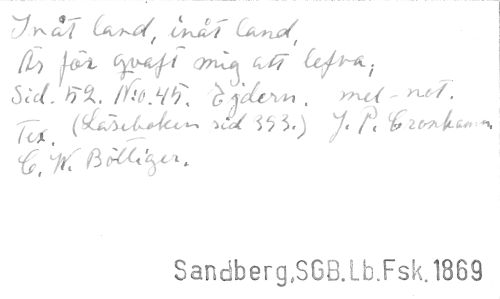 Inåt land, inåt land,
Är för qvaft mig att lefva;
Sid. 52. N:o. 45. Ejdern. mel-not.
Tex. (Läseboken sid 393.) J. P. Cronhamn.
C. W. Böttiger.
Sandberg,SGB.Lb.Fsk.1869